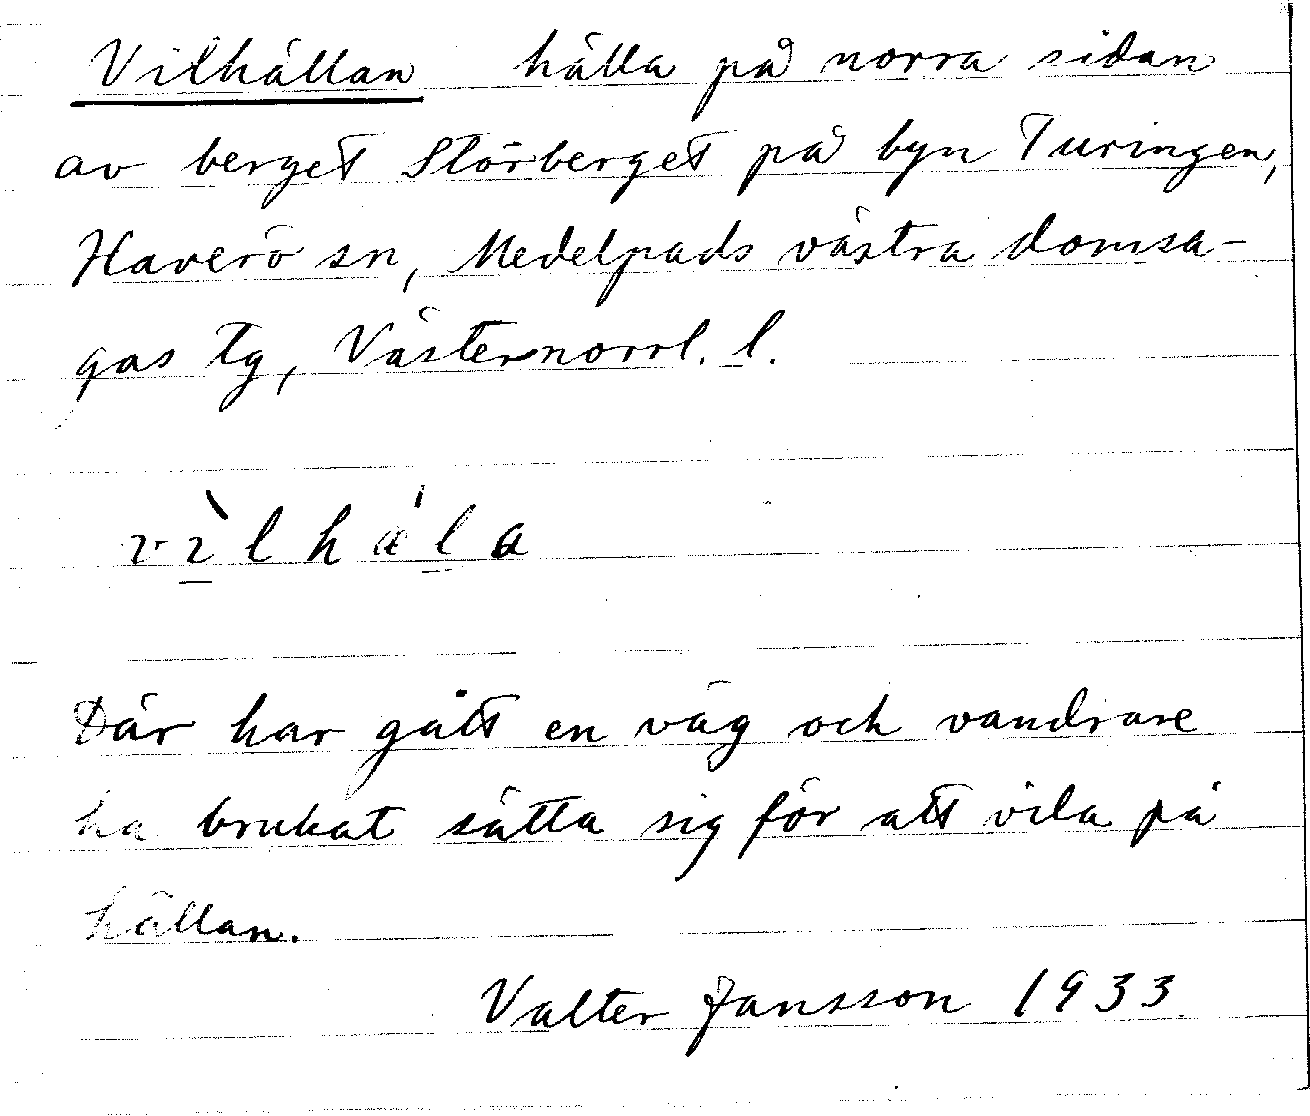 Vilhällan hälla på norra sidan
av berget Storberget på byn Turingen,
Haverö sn, Medelpads västra domsa-
gas tg, Västernorrl. l.
vìlhæ'la
Där har gått en väg och vandrare
ha brukat sätta sig för att vila på
hällan.
Valter Jansson 1933